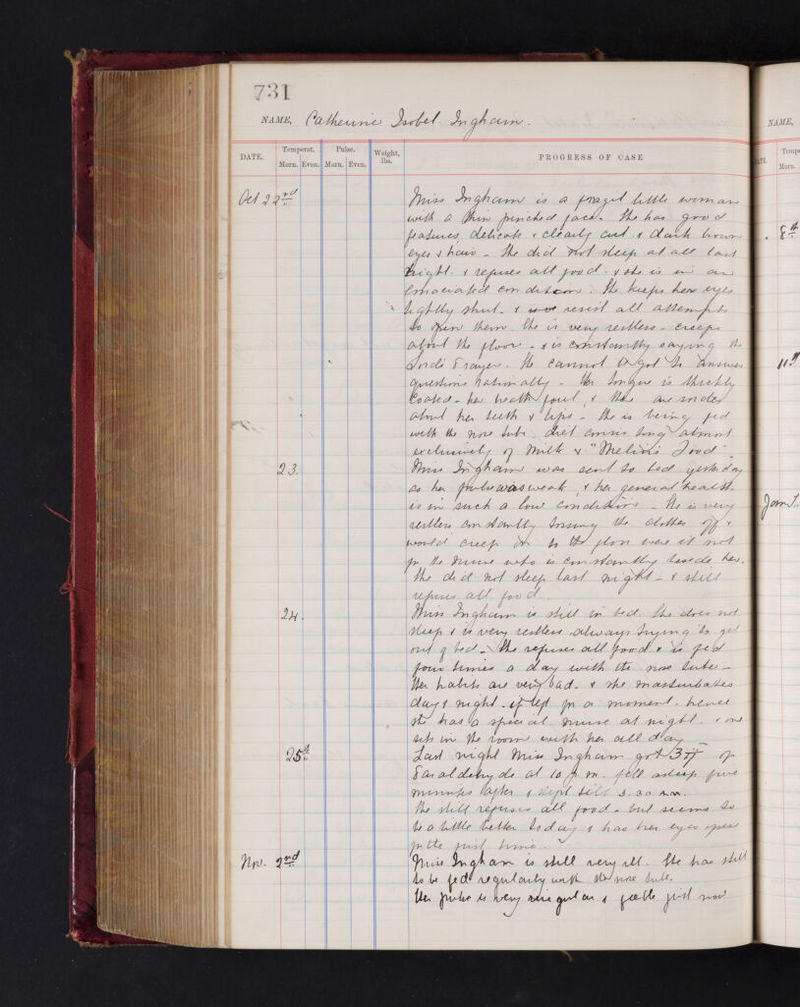 731
NAME, Catherine Isobel Ingham.
DATE.
Temperat.
Morn. Even.
Pulse.
Morn. Even.
Weight, lbs.
PROGRESS OF CASE
Oct 22nd
Miss Ingham is a fragil little woman
with a thin pinched face. She has good
features, delicate & clearly cut & dark brown
eyes & hair - She did not sleep at all last
night & refuses all food & she is in an
emaciated condition. She keeps her eyes
tightly shut & resist all attempts
to open them. She is very restless - creeps
about the floor - & is constantly saying the
Lord's Prayer. She cannot be got to answer
questions rationally - Her tongue is thickly
coated - her breath foul & there are sordes
about her teeth & lips - She is being fed
with the nose tube diet consisting almost
exclusively of milk & "Mellin's Food".
23.
Miss Ingham was sent to bed yesterday
as her pulse was weak, & her general health
is in such a low condition - She is very
restless constantly tossing the clothes off &
would creep on to the floor were it not
for the nurse who is constantly beside her.
She did not sleep last night - & still
refuses all food.
24.
Miss Ingham is still in bed. She does not
sleep & is very restless always trying to get
out of bed - She refuses all food & is fed
four times a day with the nose tube -
Her habits are very bad - & she masturbates
day & night - if left for a moment. hence
she has a special nurse at night & one
sits in the room with her all day -
25th
Last night Miss Ingham got of
Paraldehyde at 10 p.m. fell asleep five
minutes after & slept till 3.30 a.m.
She still refuses all food - but seems to
be a little better today & has her eyes open
for the first time.
Nov. 2nd
Miss Ingham is still very ill. She has still
to be fed regularly with the nose tube.
Her pulse is very irregular & feeble just now
NAME,
DATE.
Temp
Morn.
8th
11th